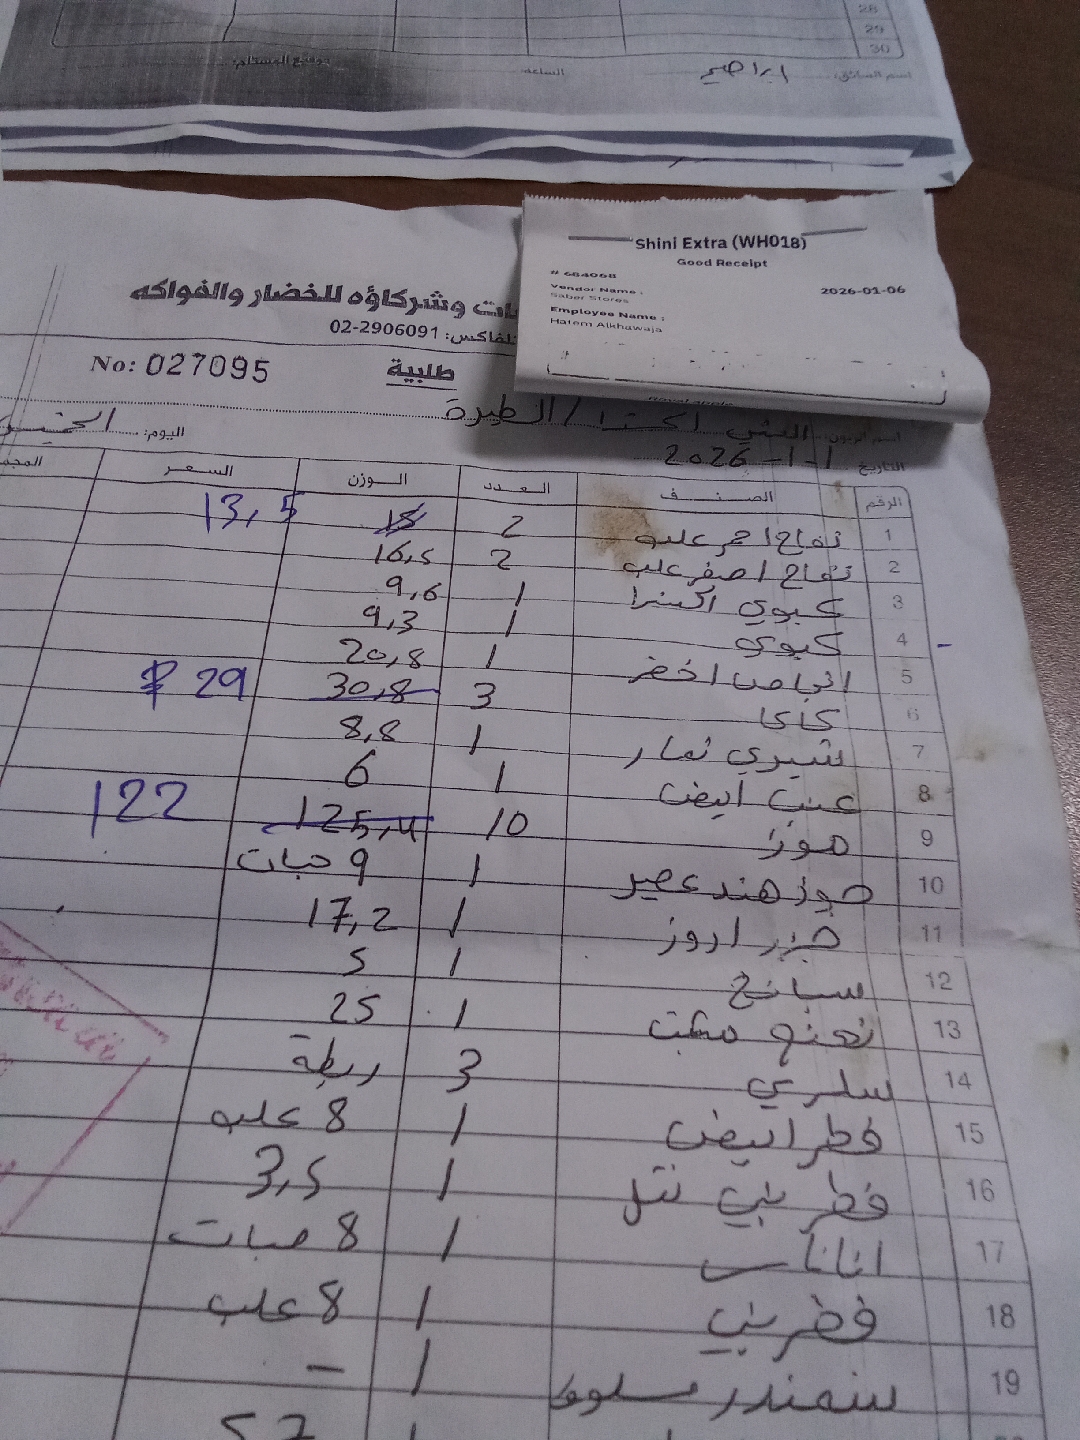 28
29
30
اسم السائق: ابراهيم
الساعة:
توقيع المستلم:
Shini Extra (WH018)
Good Receipt
# 684068
2026-01-06
Vendor Name :
Saber Stores
Employee Name :
Hatem Alkhawaja
وشركاؤه للخضار والفواكه
تلفاكس: 02-2906091
طلبية
No: 027095
اسم الزبون: الشني اكسترا / الطيرة
اليوم:
التاريخ 1-1-2026
الرقم الصنف العدد الوزن السعر
1 تفاح احمر علب 2 15 13,5
2 تفاح اصفر علب 2 16,5
3 كيوي اكسترا 1 9,6
4 كيوي 1 9,3
5 انجاص اخضر 1 20,8
6 كاكا 3 30,8 29
7 شيري تمار 1 8,8
8 عنب ابيض 1 6
9 موز 10 125,4 122
10 جوز هند عصير 1 9 حبات
11 جزر اروز 1 17,2
12 سبانخ 1 5
13 نعنع مكبت 1 25
14 سلري 3 ربطة
15 فطر ابيض 1 8 علب
16 فطر بني تتل 1 3,5
17 اناناس 1 8 حبات
18 فطر بني 1 8 علب
19 شمندر مسلوق 1 -